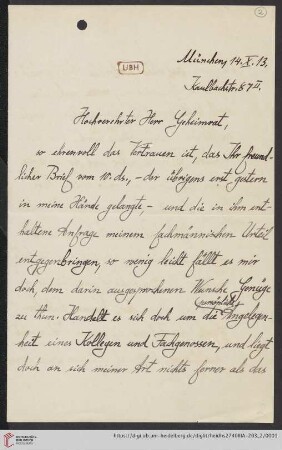 2
UBH
München, 14. X. 13.
Kaulbachstr. 87 II.
Hochverehrter Herr Geheimrat,
so ehrenvoll das Vertrauen ist, das Ihr freund-
licher Brief vom 10. ds., – der übrigens erst gestern
in meine Hände gelangte, – und die in ihm ent-
haltene Anfrage meinem fachmännischen Urteil
entgegenbringen, so wenig leicht fällt es mir
doch, dem darin ausgesprochenen Wunsche Genüge
zu thun. Handelt es sich doch um die Angelegen-
heit eines Kollegen und Fachgenossen, und liegt
doch an sich meiner Art nichts ferner als das
UNIVERSITÄTS-
BIBLIOTHEK
HEIDELBERG